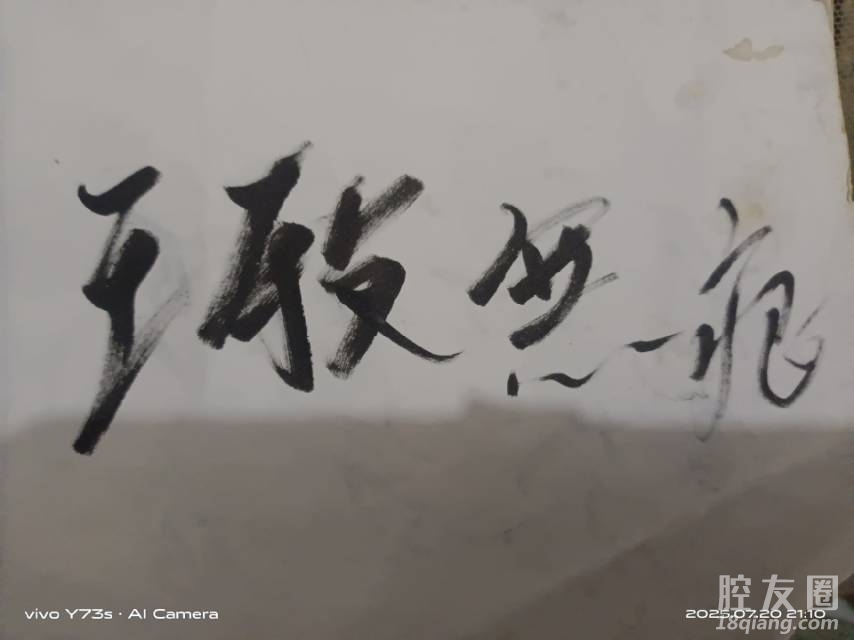 无痕
vivo Y73s · AI Camera
2025.07.20 21:10
腔友圈
18qiang.com